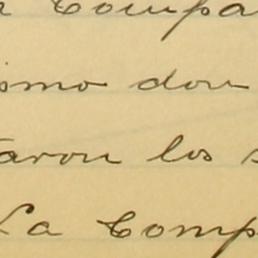 Compa
ismo don
aron los s
La Comp